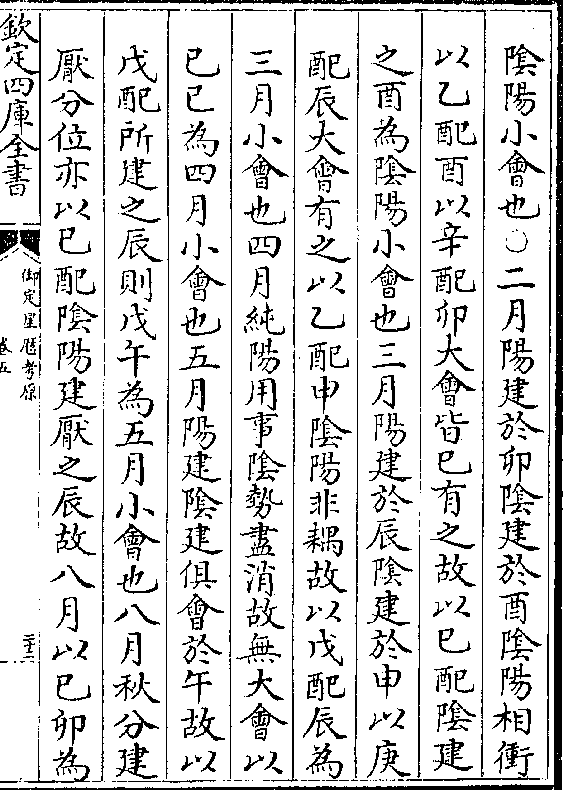 陰陽小會也○二月陽建於卯陰建於酉陰陽相衝
以乙配酉以辛配卯大會皆巳有之故以巳配陰建
之酉為陰陽小會也三月陽建於辰陰建於申以庚
配辰大會有之以乙配申陰陽非耦故以戊配辰為
三月小會也四月純陽用事陰勢盡消故無大會以
巳巳為四月小會也五月陽建陰建俱會於午故以
戊配所建之辰則戊午為五月小會也八月秋分建
厭分位亦以巳配陰陽建厭之辰故八月以巳卯為
欽定四庫全書
御定星歴考原
卷五